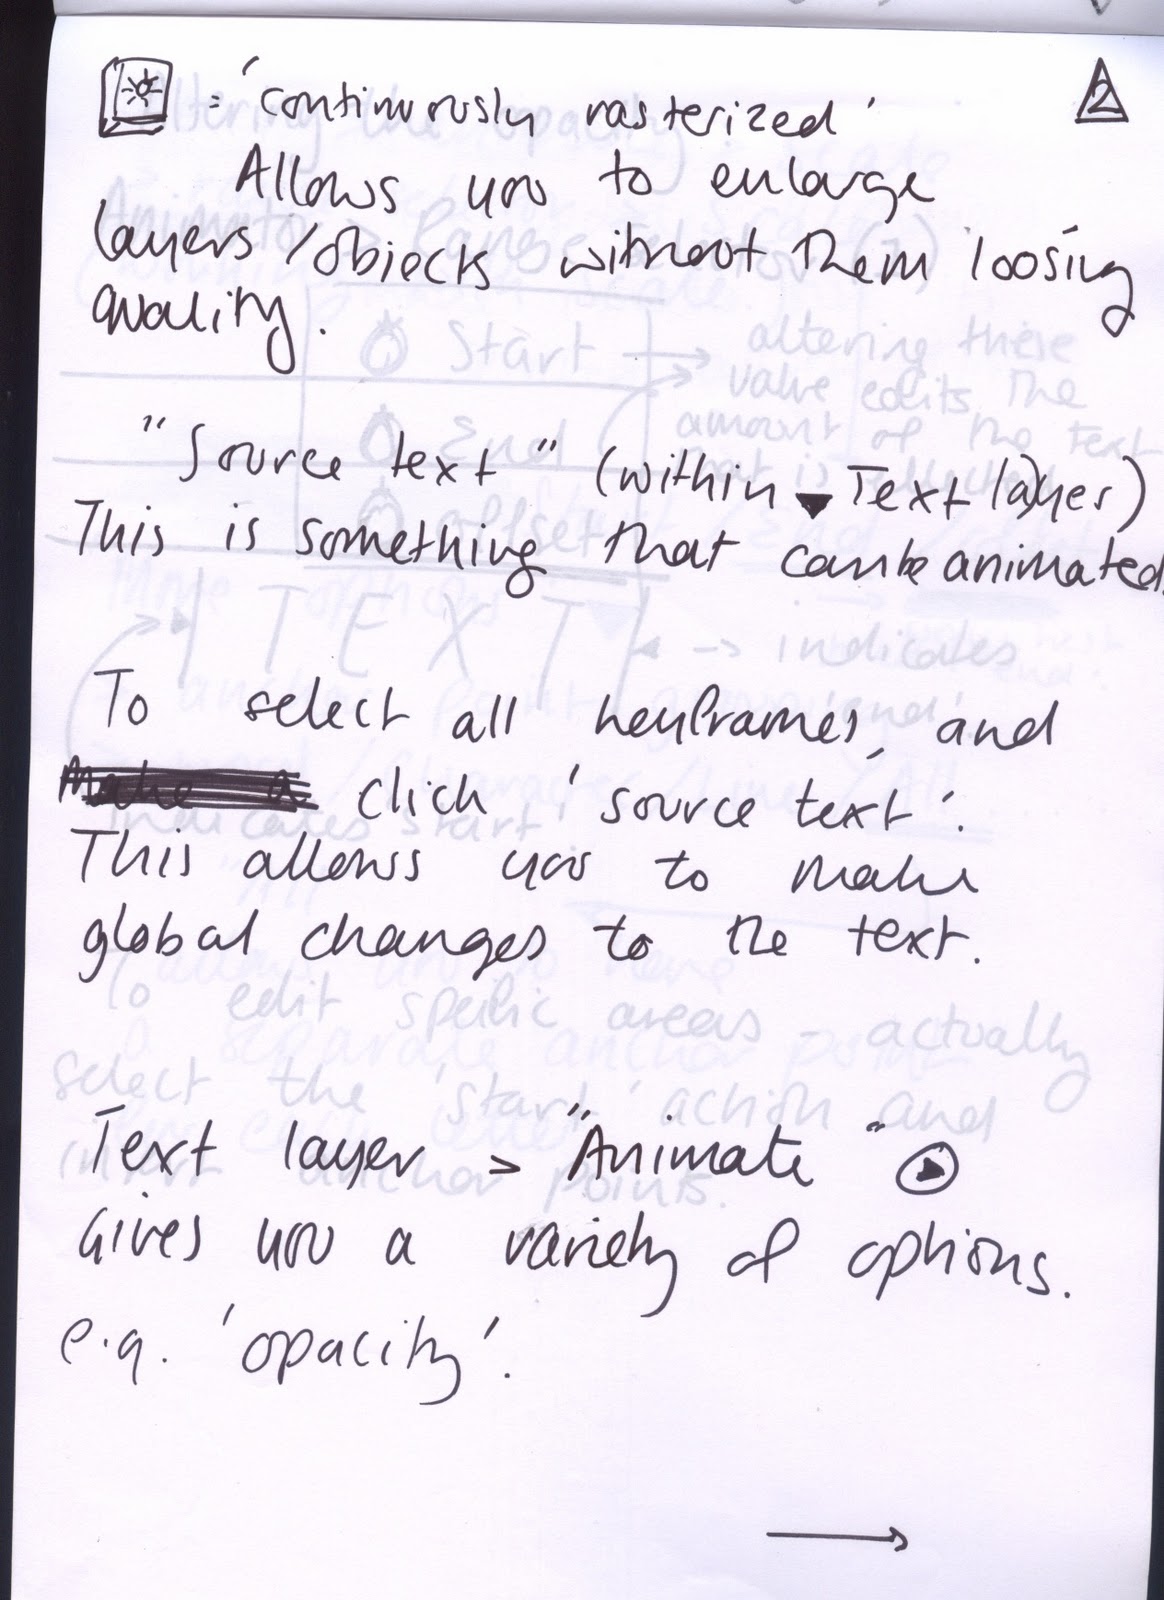 2
= 'continuously rasterized'
Allows you to enlarge
layers/objects without them loosing
quality.
"Source text" (within ▼ Text layer)
This is something that can be animated.
To select all keyframes, and
click 'source text'.
This allows you to make
global changes to the text.
Text layer > "Animate" ▶
Gives you a variety of options.
e.g. 'opacity'.
→